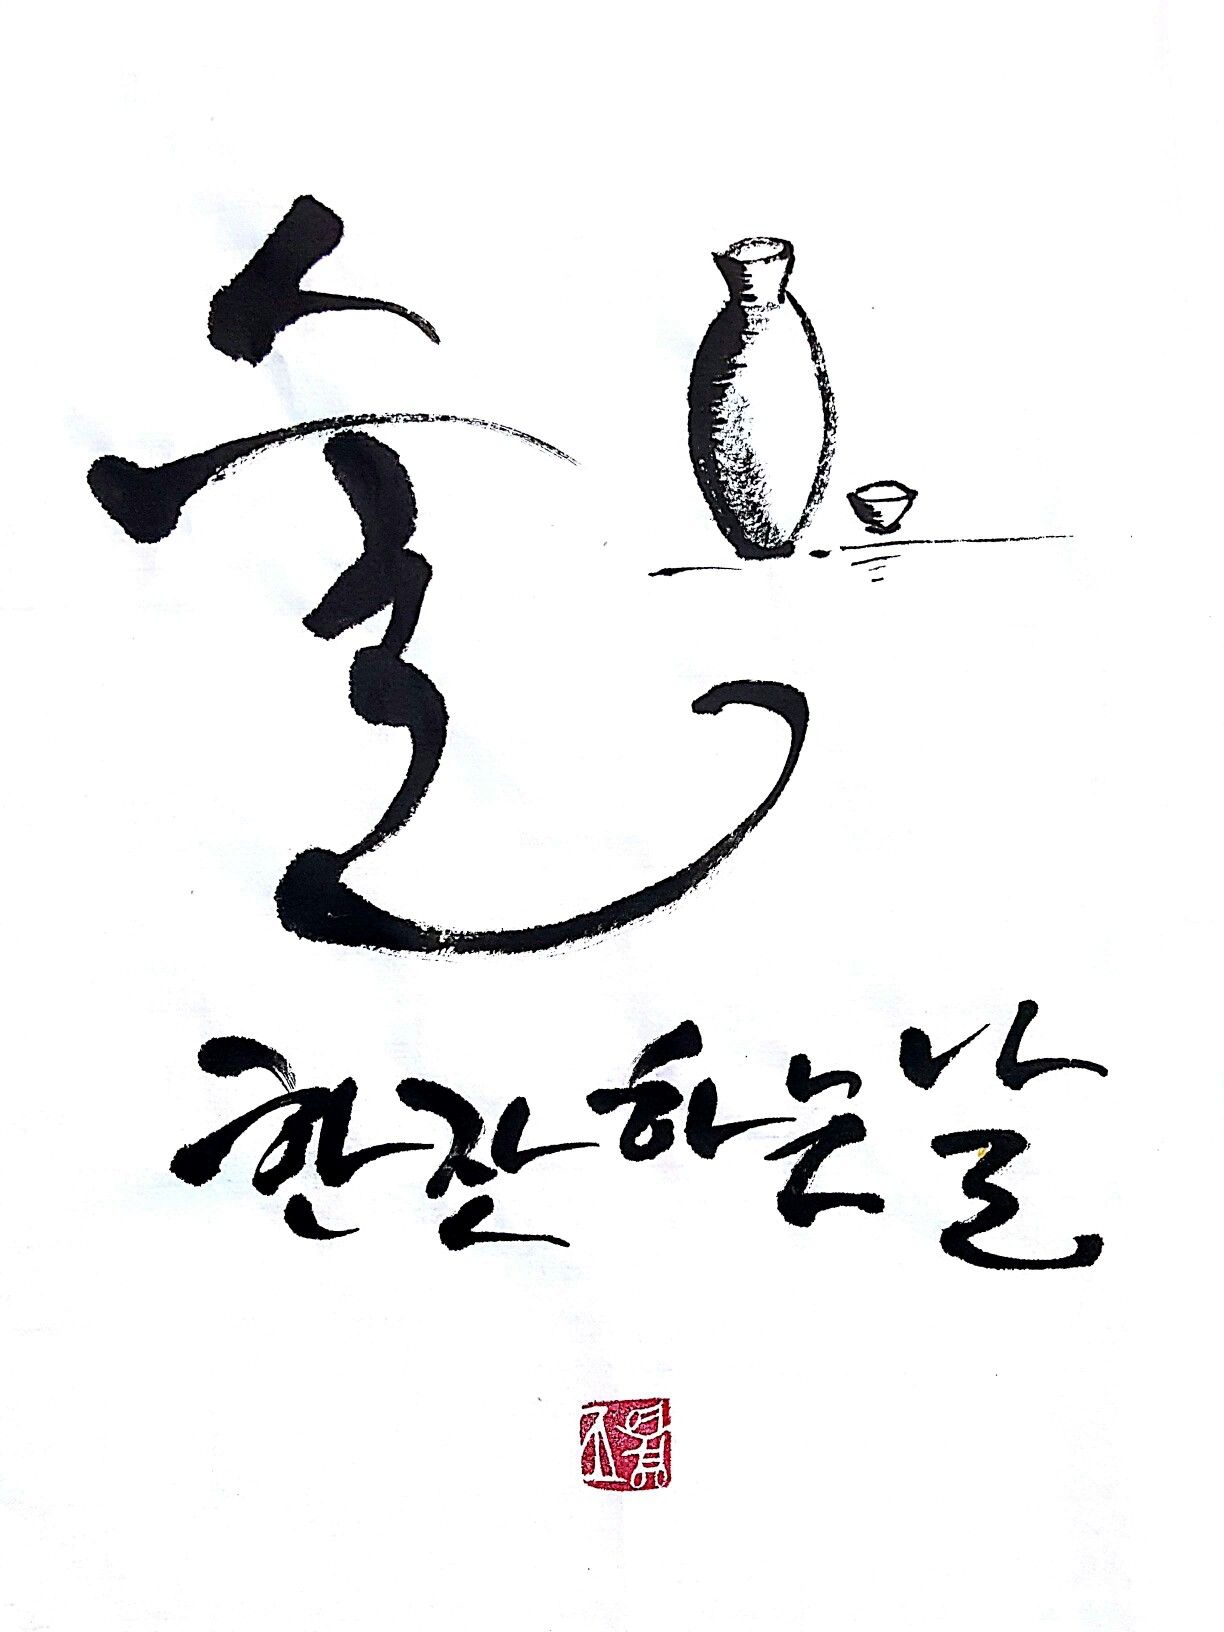 술
한잔하는날